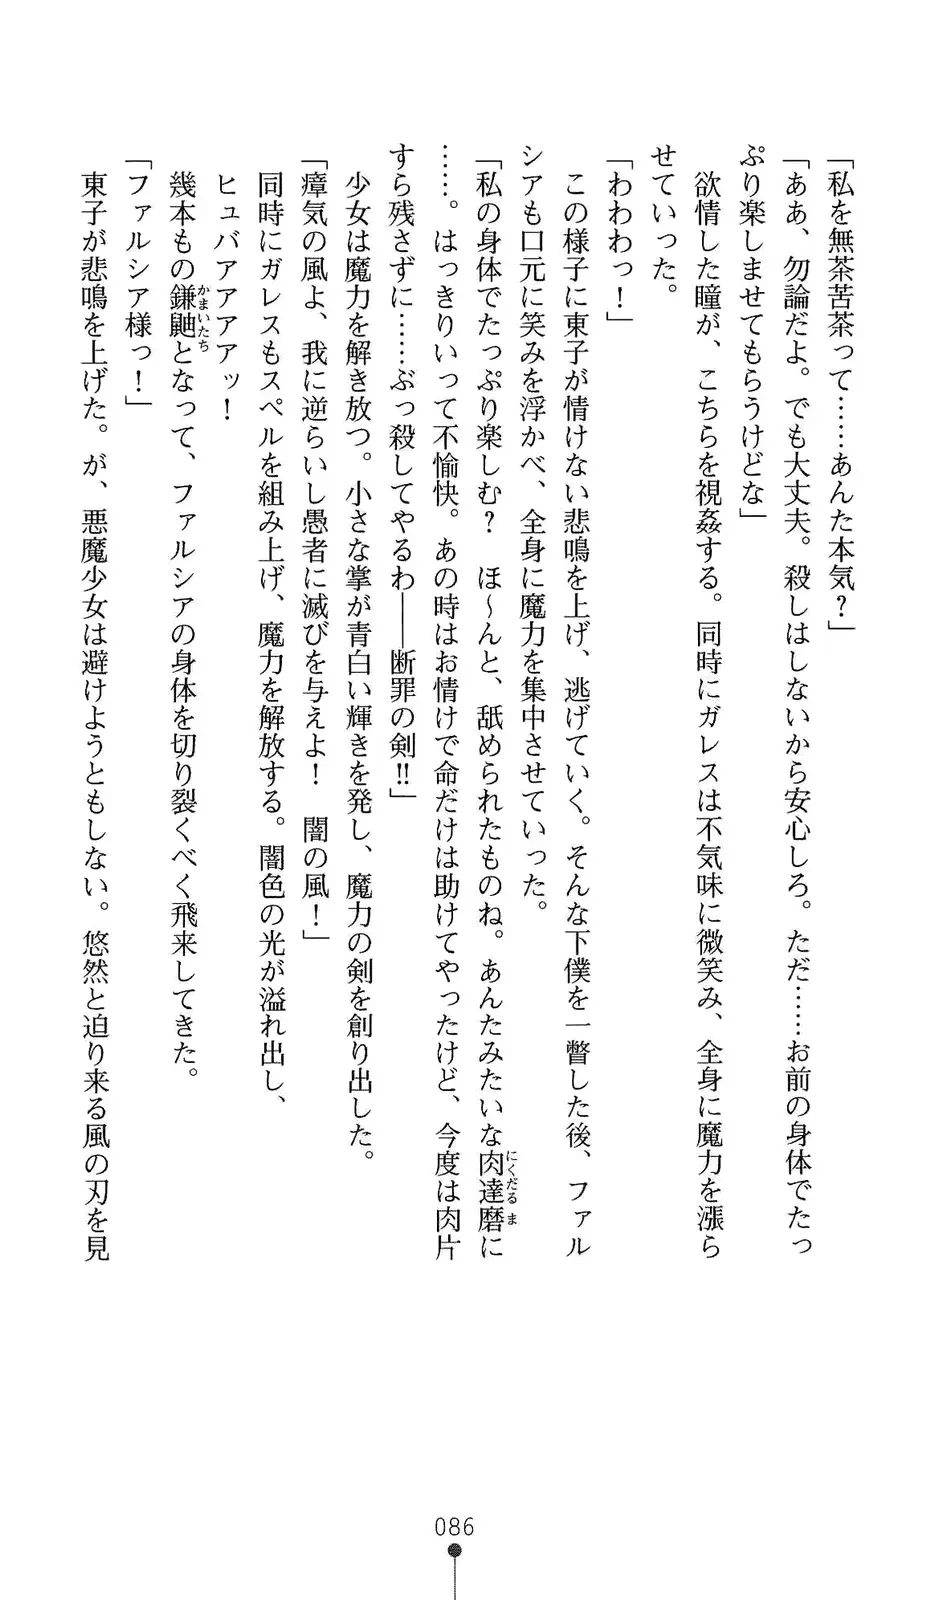 「私を無茶苦茶って……あんた本気？」
「ああ、勿論だよ。でも大丈夫。殺しはしないから安心しろ。ただ……お前の身体でたっ
ぷり楽しませてもらうけどな」
　欲情した瞳が、こちらを視姦する。同時にガレスは不気味に微笑み、全身に魔力を漲ら
せていった。
「わわわっ！」
　この様子に東子が情けない悲鳴を上げ、逃げていく。そんな下僕を一瞥した後、ファル
シアも口元に笑みを浮かべ、全身に魔力を集中させていった。
「私の身体でたっぷり楽しむ？　ほ～んと、舐められたものね。あんたみたいな肉達磨に
……。はっきりいって不愉快。あの時はお情けで命だけは助けてやったけど、今度は肉片
すら残さずに……ぶっ殺してやるわ――断罪の剣!!」
　少女は魔力を解き放つ。小さな掌が青白い輝きを発し、魔力の剣を創り出した。
「瘴気の風よ、我に逆らいし愚者に滅びを与えよ！　闇の風！」
　同時にガレスもスペルを組み上げ、魔力を解放する。闇色の光が溢れ出し、
　ヒュバアアアアッ！
　幾本もの鎌鼬となって、ファルシアの身体を切り裂くべく飛来してきた。
「ファルシア様っ！」
　東子が悲鳴を上げた。が、悪魔少女は避けようともしない。悠然と迫り来る風の刃を見
にくだるま
かまいたち
086